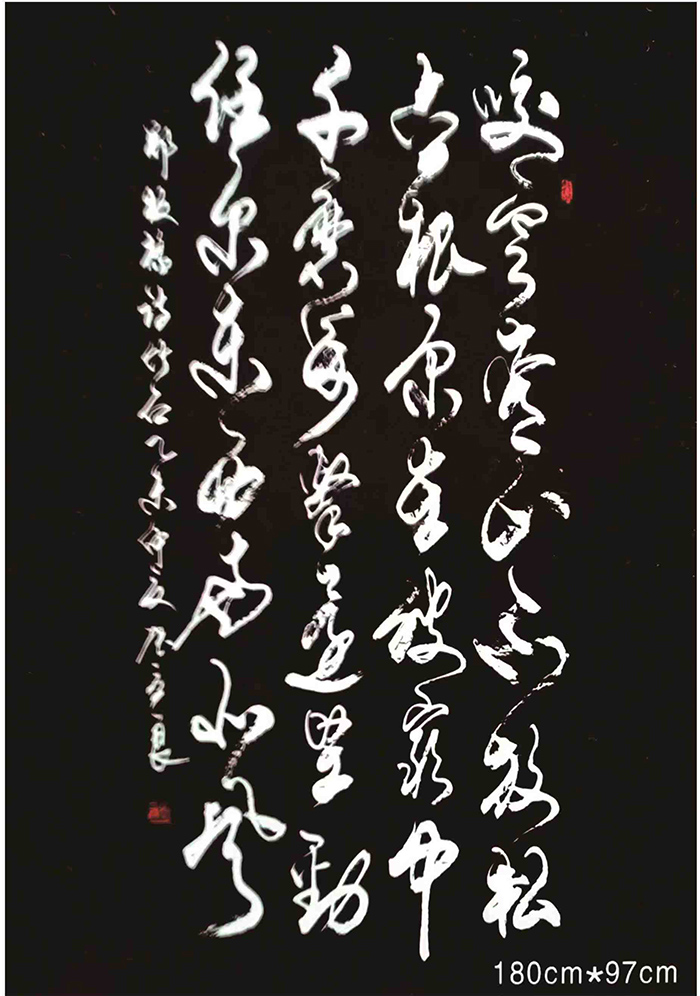 咬定青山不放松
立根原在破岩中
千磨萬擊還堅勁
任尔东西南北风
郑板桥诗竹石乙未仲夏
180cm*97cm